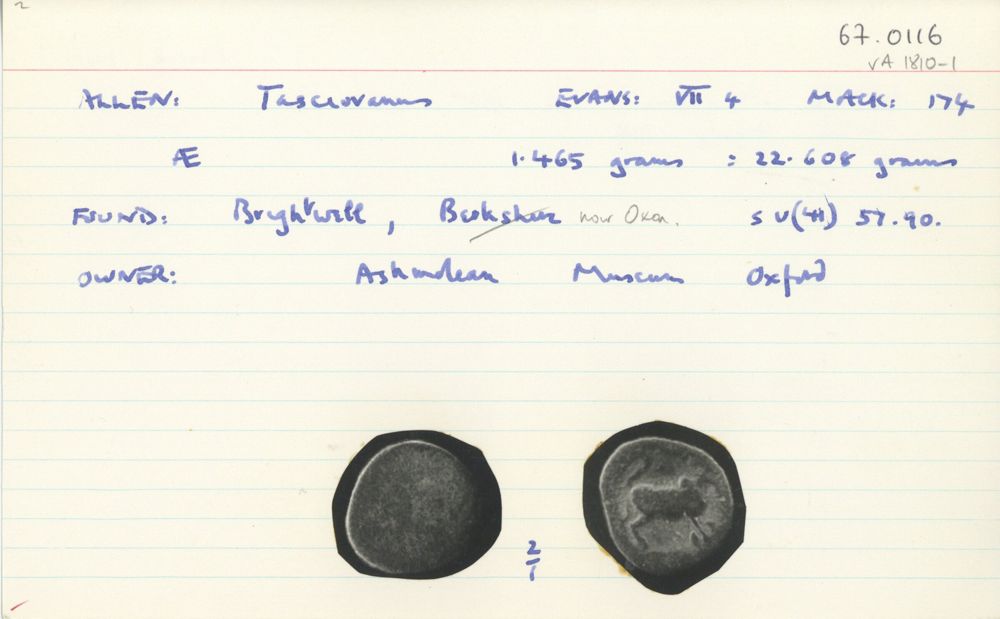 67.0116
VA 1810-1
ALLEN: Tasciovanus EVANS: VII 4 MACK: 174
Æ 1.465 grams : 22.608 grams
FOUND: Brightwell, Berkshire now Oxon. SU(41) 57.90.
OWNER: Ashmolean Museum Oxford
2/1